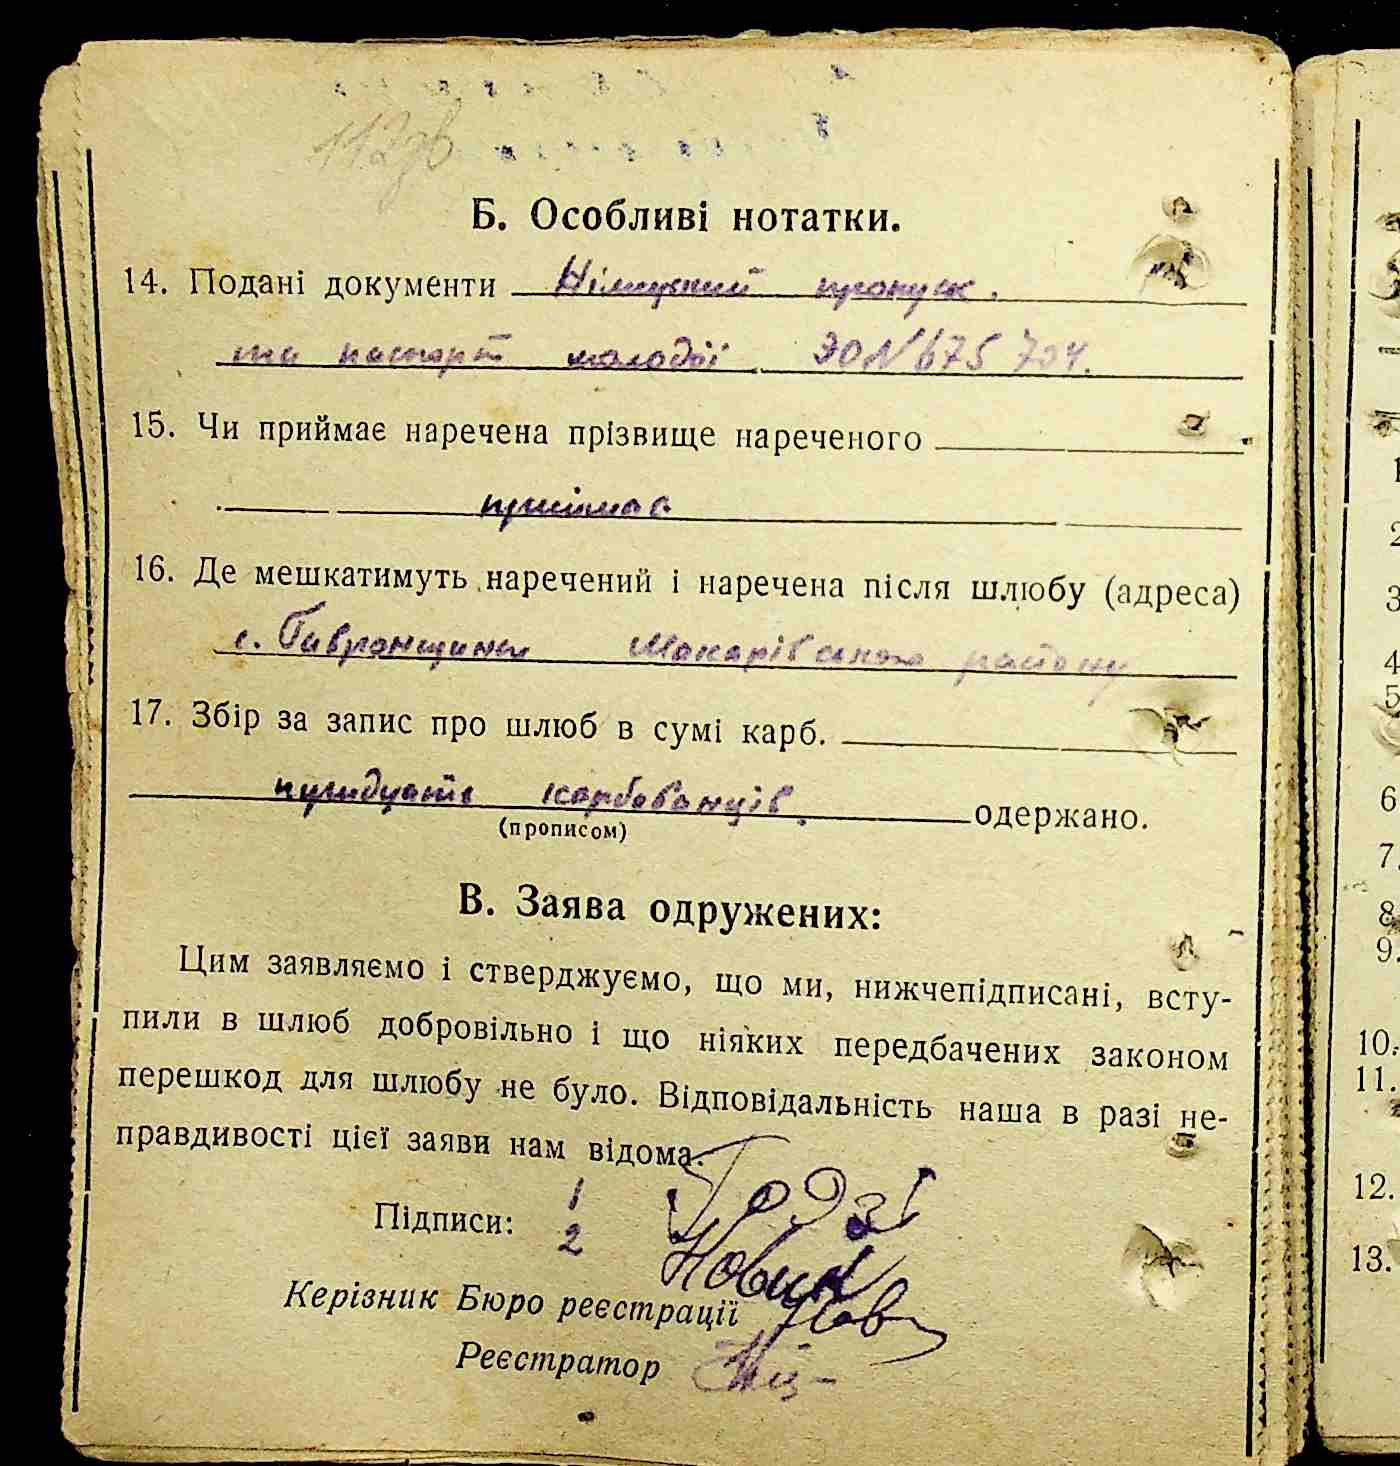 112зв
Б. Особливі нотатки.
14. Подані документи Німецький пропуск.
та паспорт молодої ЭО № 675 704.
15. Чи приймає наречена прізвище нареченого
приймає
16. Де мешкатимуть наречений і наречена після шлюбу (адреса)
с. Гавронщина Макарівського району
17. Збір за запис про шлюб в сумі карб.
пятдцять карбованців. одержано.
(прописом)
В. Заява одружених:
Цим заявляємо і стверджуємо, що ми, нижчепідписані, всту-
пили в шлюб добровільно і що ніяких передбачених законом
перешкод для шлюбу не було. Відповідальність наша в разі не-
правдивості цієї заяви нам відома.
Підписи: 1
2 Новик
Керізник Бюро реєстрації
Реєстратор
14
2
3
4
5
6
7.
8
9.
10.
11.
12.
13.